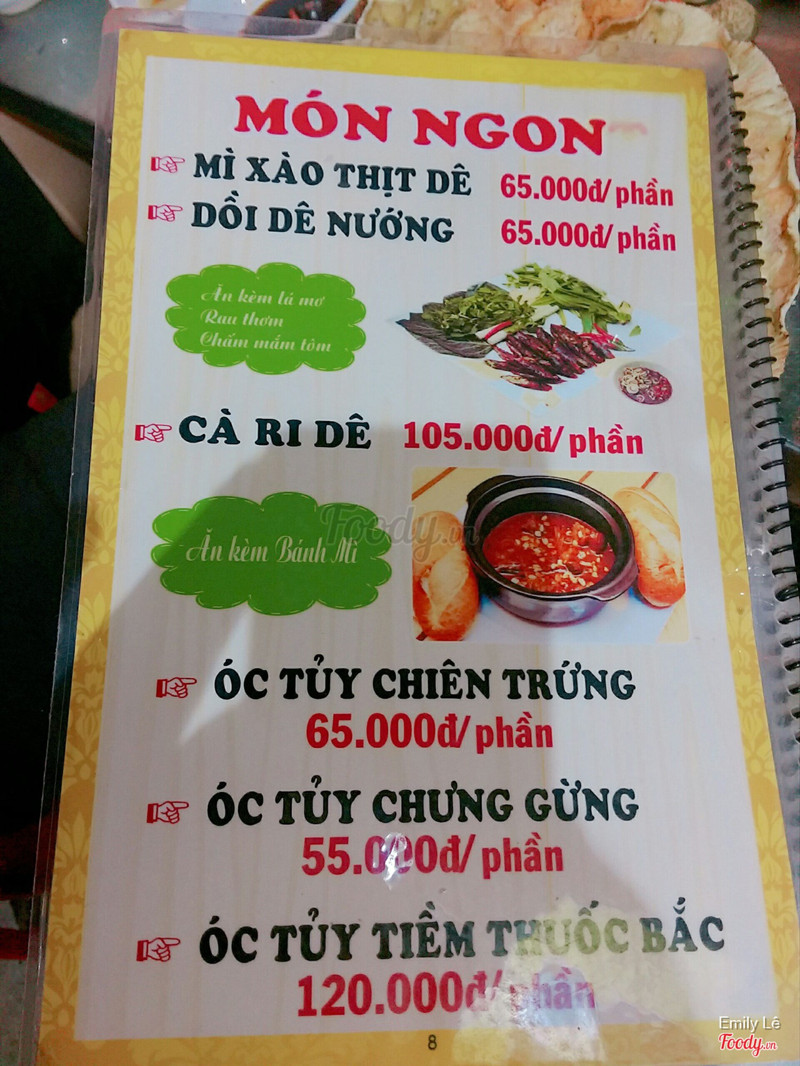 MÓN NGON
MÌ XÀO THỊT DÊ 65.000đ/phần
DỒI DÊ NƯỚNG 65.000đ/phần
Ăn kèm lá mơ
Rau thơm
Chấm mắm tôm
CÀ RI DÊ 105.000đ/phần
Foody.vn
Ăn kèm Bánh Mì
ÓC TỦY CHIÊN TRỨNG
65.000đ/phần
ÓC TỦY CHƯNG GỪNG
55.000đ/phần
ÓC TỦY TIỀM THUỐC BẮC
120.000đ/phần
8
Emily Lê
Foody.vn